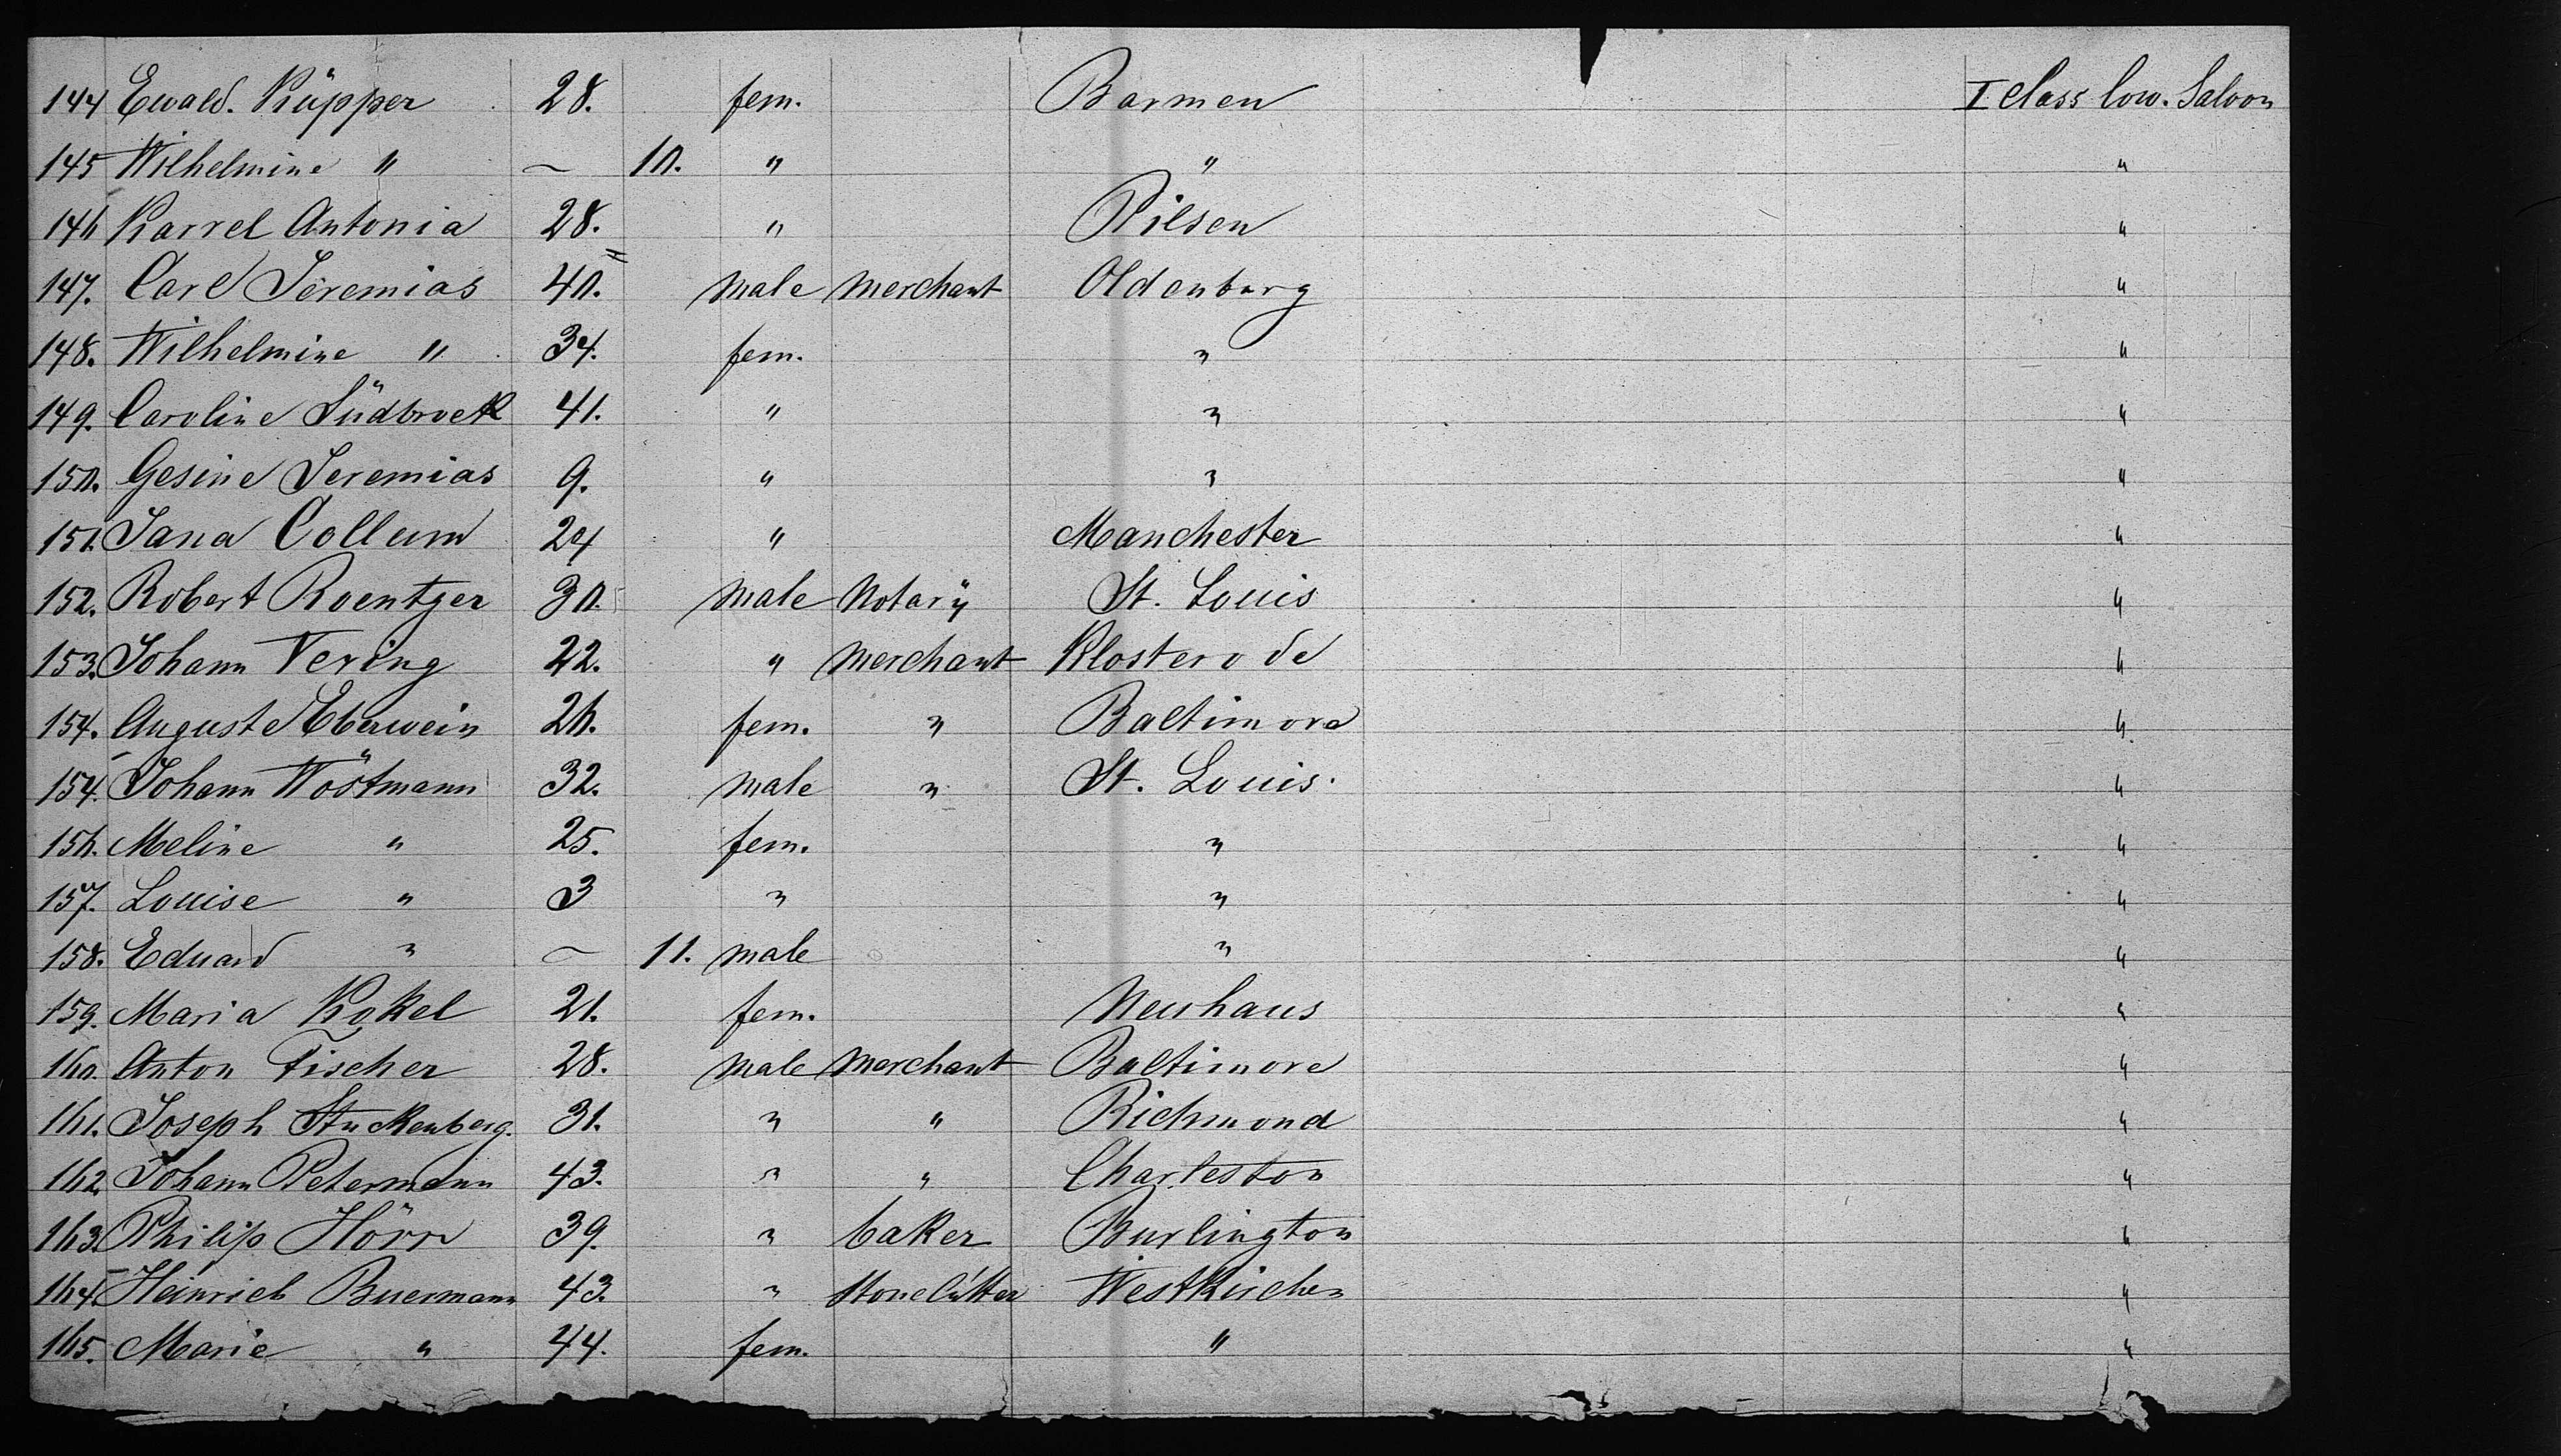 144 Ewald. Küpper 28. fem. Barmen I Class low. Saloon
145 Wilhelmine " ~ 10. " " "
146 Karrel Antonia 28. " Pilsen "
147. Carl Jeremias 40. male merchant Oldenburg "
148. Wilhelmine " 34. fem. " "
149. Caroline Südbrock 41. " " "
150. Gesine Jeremias 9. " " "
151. Jana Collum 24 " Manchester "
152. Robert Roentger 30. male Notarÿ St. Louis "
153. Johann Vering 22. " merchant Klosterode "
154. Auguste Eberwein 26. fem. " Baltimore "
154. Johann Wöstmann 32. male " St. Louis. "
156. Meline " 25. fem. " "
157. Louise " 3 " " "
158. Eduard " ~ 11. male " "
159. Maria Kokel 21. fem. Neuhaus "
160. Anton Fischer 28. male merchant Baltimore "
161. Joseph Stuckenberg. 31. " " Richmond "
162. Johann Petermann 43. " " Charleston "
163. Philip Hörr 39. " baker Burlington "
164. Heinrich Buermann 43. " stonecutter Westkirchen "
165. Marie " 44. fem. " "